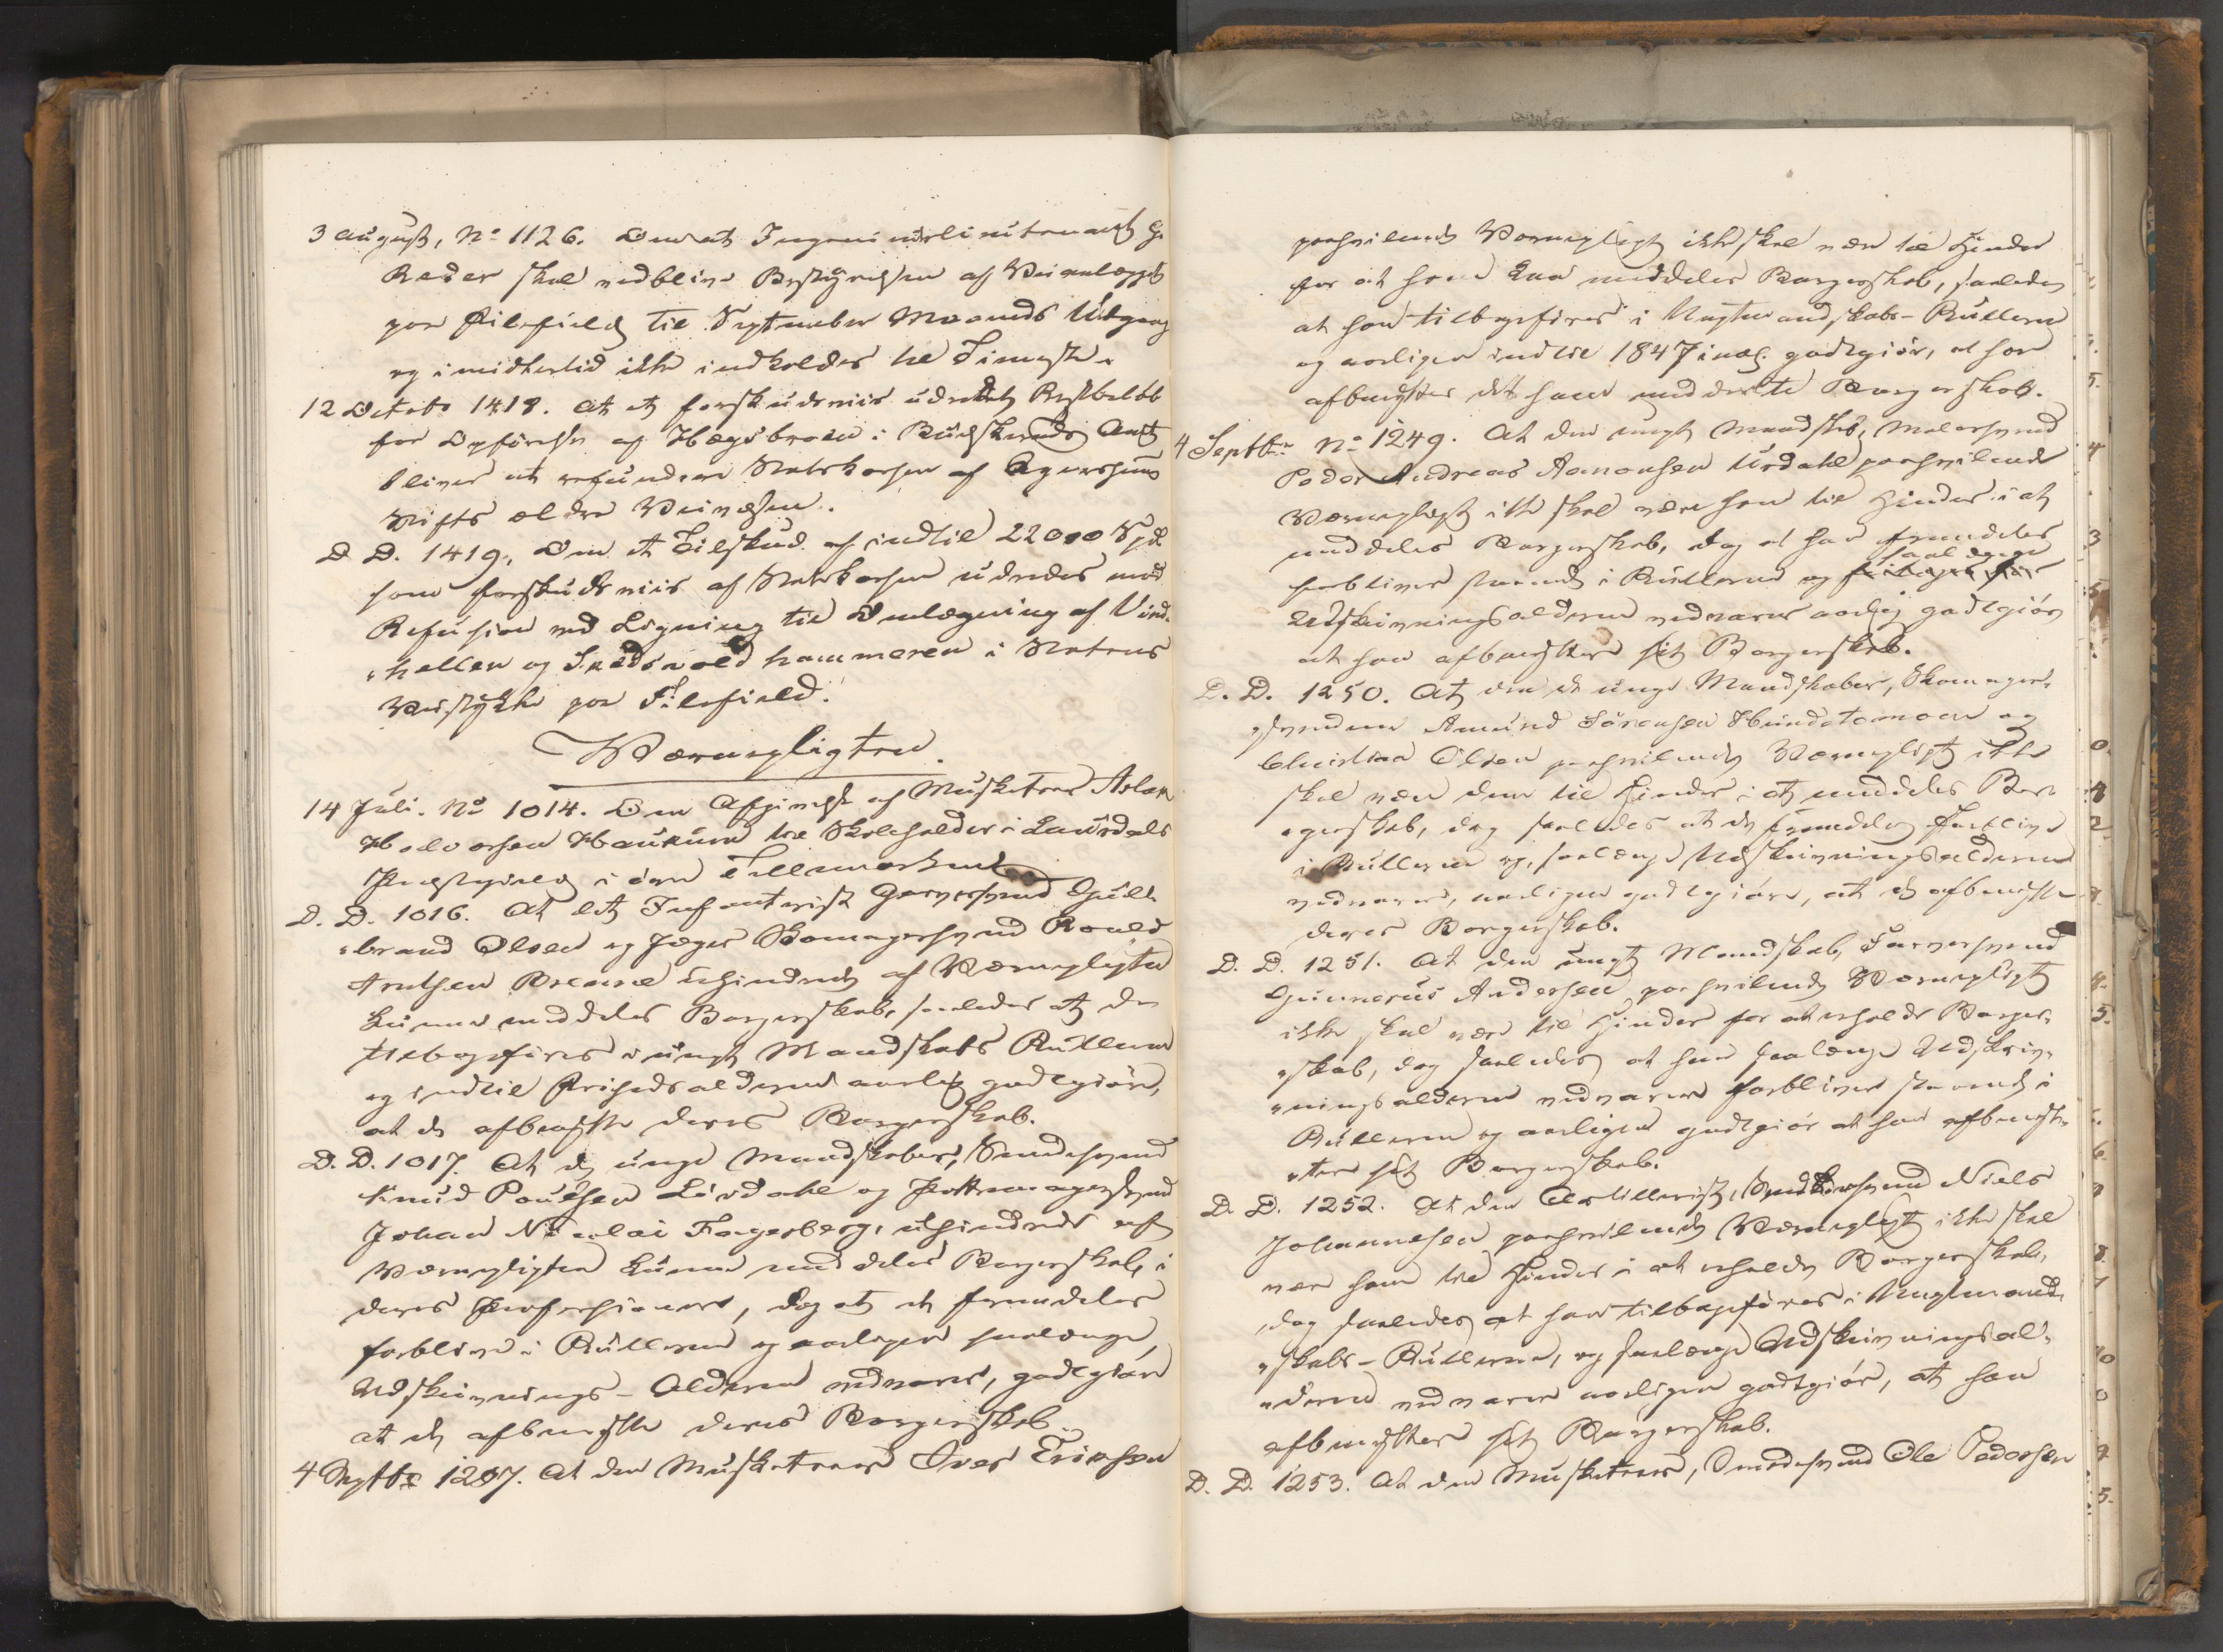 3 august, No 1126. Om at Ingenieurlieutenant G.
Ræder skal vedblive Bestyrelsen af Veianlægget
paa Filefield til September Maaneds Udgang
og imidlertid ikke indkaldes til Tieneste.
12 Octobr 1418. At et forskudsviis udredet Restbeløb
for Opførelse af Hægsbroen i Budskeruds Amt
bliver at refundere Statskassen af Agershuus
Stifts ældre Veivæsen.
D. D. 1419, Om et Tilskud af indtil 22000 Spd
som forskudsviis af Statskassen udredes mod
Refusion ved Ligning til Omlægning af Vind-
hellen og hammeren i Statens
Veistykke paa Filefield.
Værnepligten.
14 Juli. No 1014. Om Afgivelse af Musketeer Aslak
Halvorsen Haukum til Skoleholder i Laurdals
Præstegield i øvre Tellemarken
D. D. 1016. At det Infanterist Garversvend Guld-
brand Olsen og Jæger Skomagersvend Roald
Arntsen uhindrede af Værnepligten
kunne meddeles Borgerskab, saaledes at de
tilbageføres i ungt Mandskabs Rullerne
og indtil Frihedsalderen aarlig godtgiøre,
at de afbenytte deres Borgerskab.
D. D. 1017. At de unge Mandskaber, Smedesvend
Knud Poulsen Lövdahl og Pottemagersvend
Johan Nicolai Fagerberg, uhindrede af
Værnepligten kunne meddeles Borgerskab i
deres Professioner, dog at de fremdeles
forblive i Rullerne og aarligen saalænge
Udskrivnings-Alderen vedvarer, godtgiøre
at de afbenytte deres Borgerskab.
4 Septbr 1207. At den Musketeer Iver Erichsen
paahvilende Værnepligt ikke skal være til Hinder
for at han kan meddeles Borgerskab, saaledes
at han tilbageføres i Ungtmandskabs-Rullerne
og aarligen indtil 1847 incl. godtgiør, at han
afbenytter det ham meddeelte Borgerskab.
4 Septbr No 1249. At den ungt Mandskab, Malersvend
Peder Andreas Aamonsen Urdahl paahvilende
Værnepligt ikke skal være ham til Hinder i at
meddeles Borgerskab, dog at han fremdeles
forbliver staaende i Rullerne og saalænge
Udskrivningsalderen vedvarer aarlig godtgiør
at han afbenytter sit Borgerskab.
D. D. 1250. At den de unge Mandskaber, Skomager-
svendene Amund Sörensen Hundstomoen og
Christian Olsen paahvilende Værnepligt ikke
skal være dem til Hinder i at meddeles Bor-
gerskab, dog saaledes at de fremdeles forblive
i Rullerne og, saalænge Udskrivningsalderen
vedvarer, aarligen godtgiøre, at de afbenytte
deres Borgerskab.
D. D. 1251. At den ungt Mandskab, Farversvend
Gunnerus Andersen paahvilende Værnepligt
ikke skal være til Hinder for at erholde Borger-
skab, dog saaledes at han saalænge Udskriv-
ningsalderen vedvarer forbliver staaende i
Rullerne og aarligen godtgiør at han afbenyt-
ter sit Borgerskab.
D. D. 1252. At den Artillerist, Snedkersvend Niels
Johannesen paahvilende Værnepligt ikke skal
være ham til Hinder i at erholde Borgerskab,
dog saaledes at han tilbageføres i Ungtmand-
skabs-Rullerne, og saalænge Udskrivningsal-
deren vedvarer aarligen godtgiør, at han
afbenytter sit Borgerskab.
D. D. 1253. At den Musketeer, Smedesvend Ole Pedersen